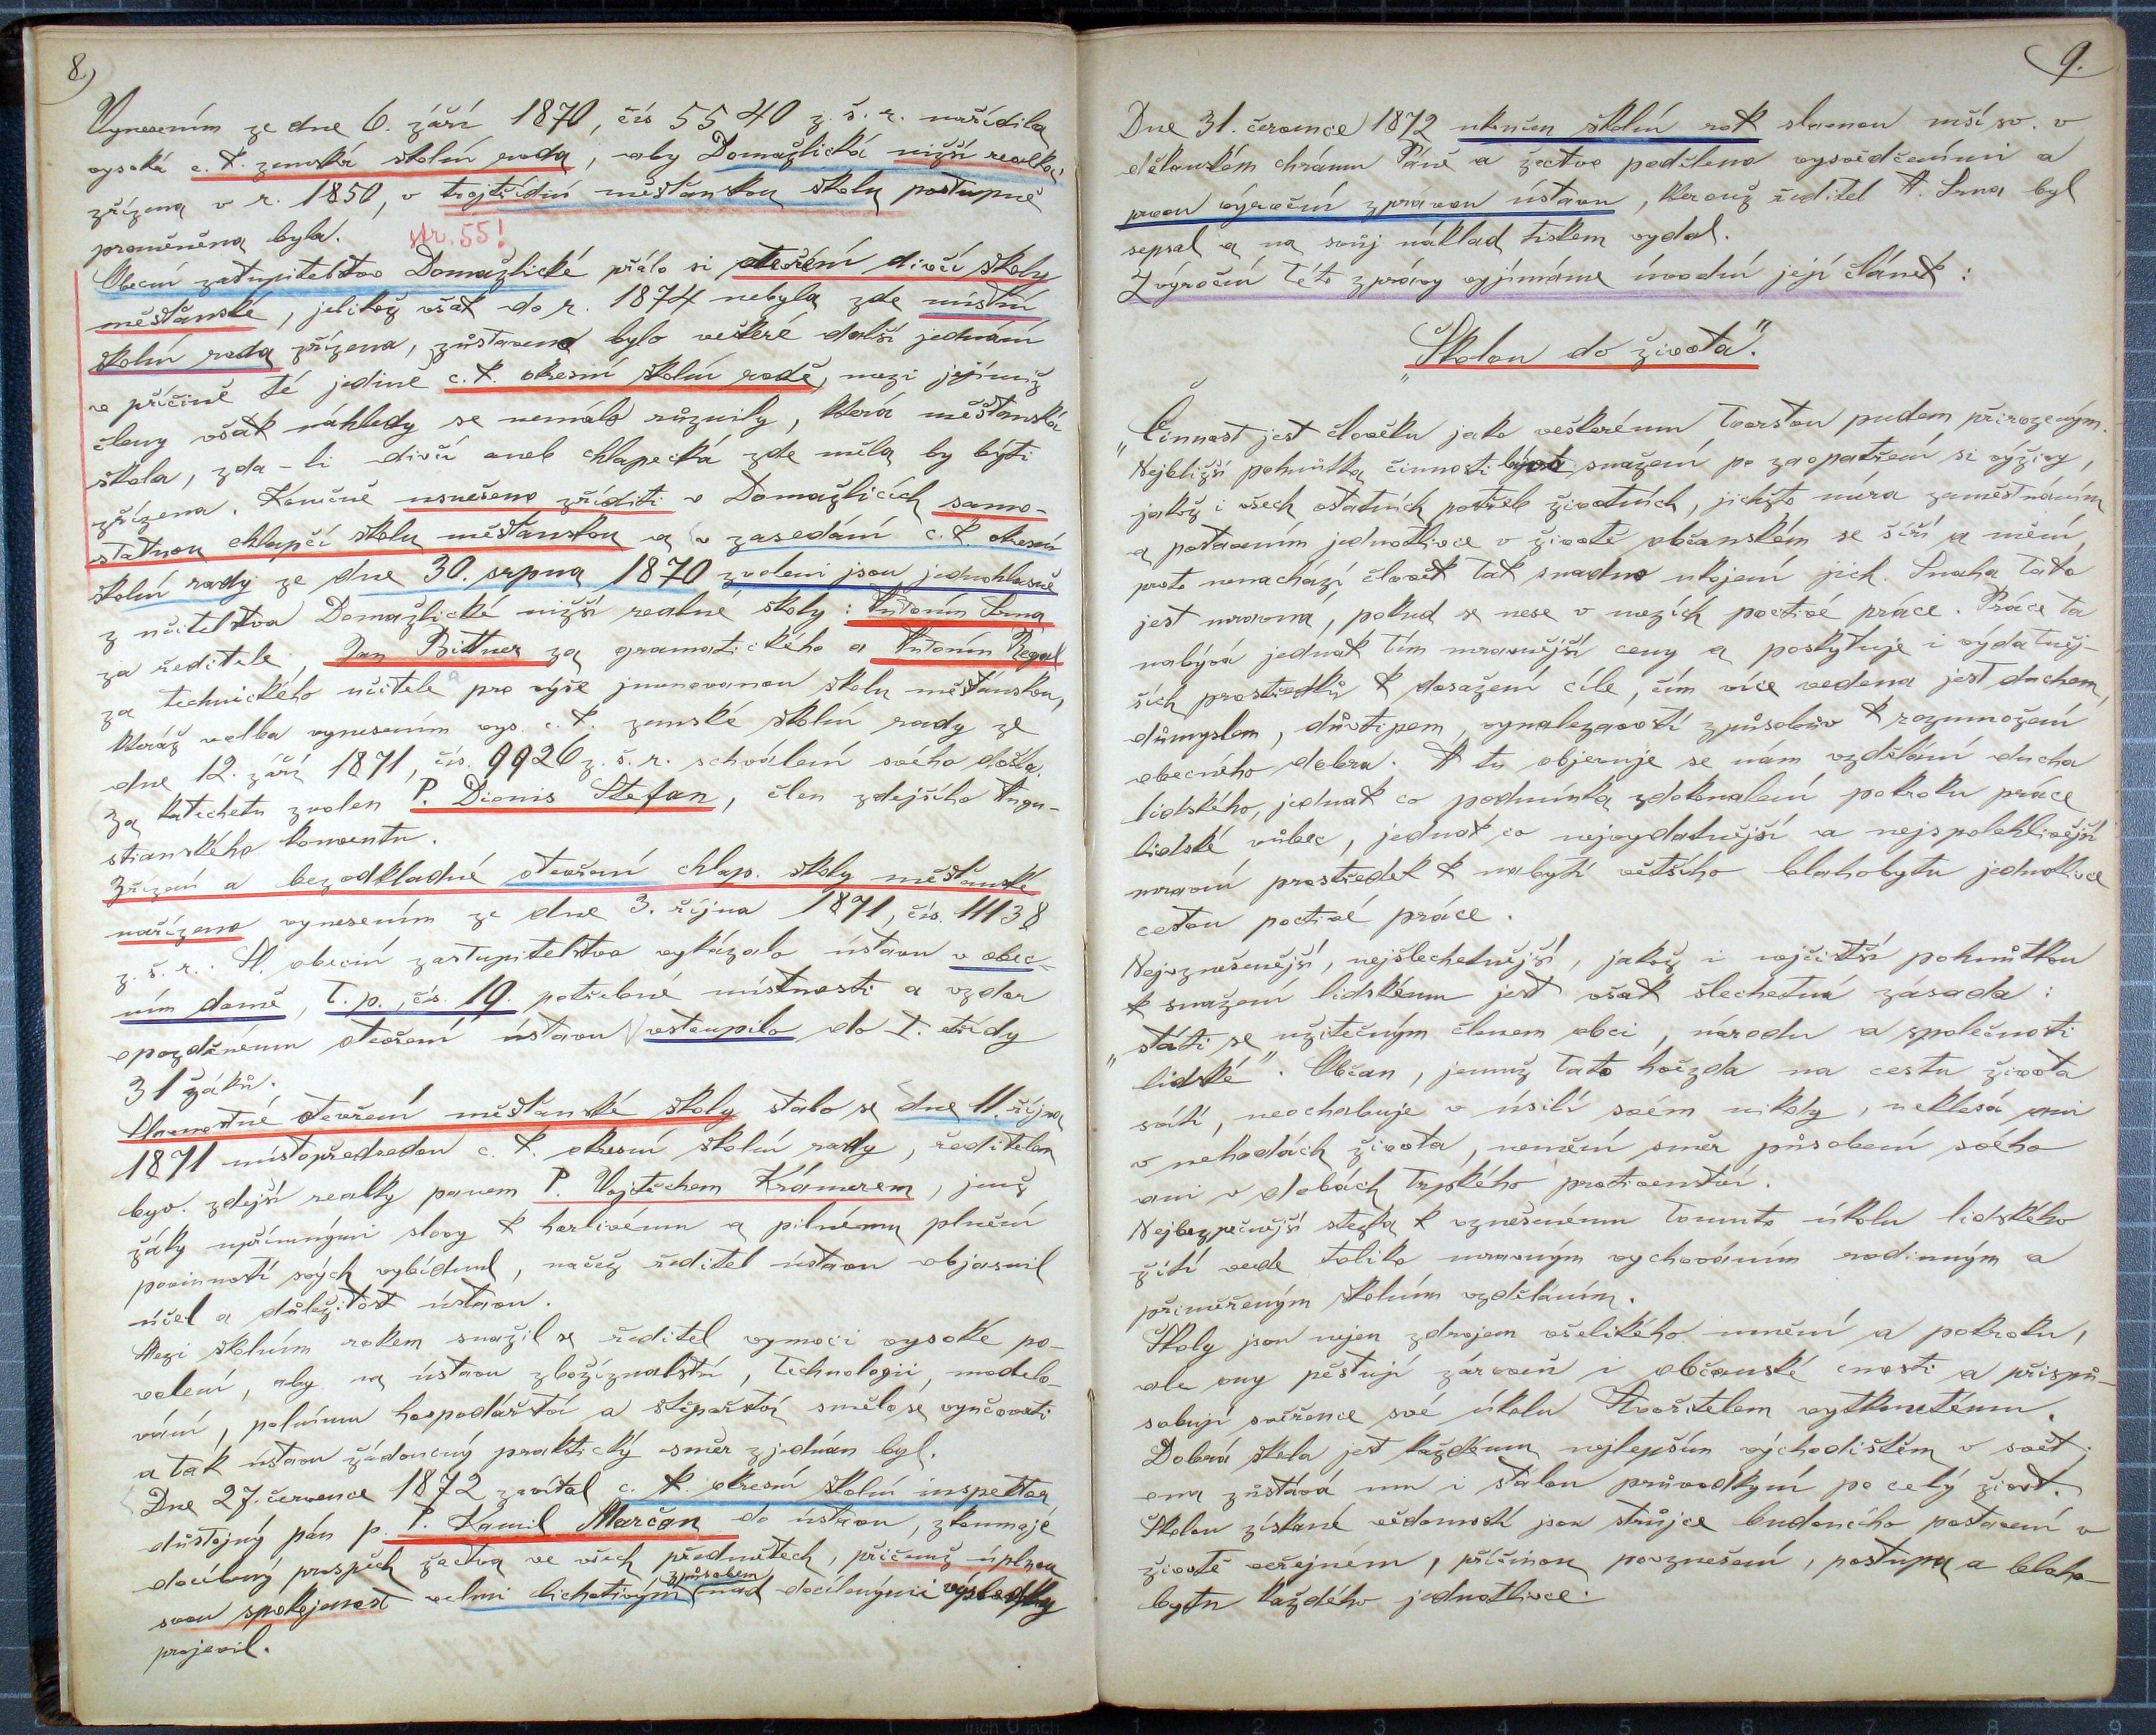 8)
Vynesením ze dne 6. září 1870, čís 5540 z. š. r. nařídila
vysoká c. k. zemská školní rada, aby Domažlická nižší realka,
zřízena v r. 1850, v trojtřídní měšťanskou školu postupně
proměněna byla.
str. 55!
Obecní zastupitelstvo Domažlické přálo si otevření dívčí školy
měšťanské, jelikož však do r. 1874 nebyla zde místní
školní rada zřízena, zůstaveno bylo veškeré další jednání
v příčině té jedině c. k. okresní školní radě, mezi jejímiž
členy však náhledy se nemálo různily, která měšťanská
škola, zda-li dívčí aneb chlapecká zde měla by býti
zřízena. Konečně usnešeno zříditi v Domažlicích samo-
statnou chlapčí školu měšťanskou a v zasedání c. k. okresní
školní rady ze dne 30. srpna 1870 zvoleni jsou jednohlasně
z učitelstva Domažlické nižší realné školy: Antonín Srna
za ředitele, Jan Bittner za gramatického a Antonín Regal
za technického učitele pro výše jmenovanou školu měšťanskou,
kteráž volba vynesením vys. c. k. zemské školní rady ze
dne 12. září 1871, čís. 9926 z. š. r. schválení svého došla.
Za katechetu zvolen P. Dionis Štefan, člen zdejšího Augu-
stianského konventu.
Zřízení a bezodkladné otevření chlap. školy měšťanské
nařízeno vynesením ze dne 3. října 1871, čís. 11138
z. š. r. Sl. obecní zastupitelstvo vykázalo ústavu v obec-
ním domě, č. p. čís. 19. potřebné místnosti a vzdor
opozděnému otevření ústavu vstoupilo do I. třídy
31 žáků.
Slavnostné otevření měšťanské školy stalo se dne 11. října
1871 místopředsedou c. k. okresní školní rady, ředitelem
býv. zdejší realky panem P. Vojtěchem Krámerem, jenž
žáky upřímnými slovy k horlivému a pilnému plnění
povinností svých vybídnul, načež ředitel ústavu objasnil
účel a důležitost ústavu.
Mezi školním rokem snažil se ředitel vymoci vysoké po-
volení, aby na ústavu zbožíznalství, technologii, modelo-
vání, polnímu hospodářství a štěpařství smělo se vyučovati
a tak ústavu žádoucný praktický směr zjednán byl.
Dne 27. července 1872 zavítal c. k. okresní školní inspektor
důstojný pán p. P. Kamil Marčan do ústavu, zkoumaje
docílený prospěch žactva ve všech předmětech, přičemž úplnou
svou spokojenost velmi lichotivým způsobem nad docílenými výsledky
projevil.
9.
Dne 31. července 1872 ukončen školní rok slavnou mší sv. v
děkanském chrámu Páně a žactvo poděleno vysvědčeními a
prvou výroční zprávou ústavu, kterouž ředitel A. Srna byl
sepsal a na svůj náklad tiskem vydal.
Z výroční této zprávy vyjímáme úvodní její článek:
„Školou do života".
„Činnost jest člověku jako veškerému tvorstvu pudem přirozeným.
Nejbližší pohnůtkou činnosti bývá snažení po zaopatření si výživy,
jakož i všech ostatních potřeb životních, jichžto míra zaměstnáním
a postavením jednotlivce v životě občanském se šíří a mění,
proto nenachází člověk tak snadno ukojení jich. Snaha tato
jest mravná, pokud se nese v mezích poctivé práce. Práce ta
nabývá jednak tím mravnější ceny a poskytuje i výdatněj-
ších prostředků k dosažení cíle, čím více vedena jest duchem,
důmyslem, důvtipem, vynalezavostí způsobův k rozmnožení
obecného dobra. A tu objevuje se nám vzdělání ducha
lidského, jednak co podmínka zdokonalení pokroku práce
lidské vůbec, jednak co nejvydatnější a nejspolehlivější
mravní prostředek k nabytí většího blahobytu jednotlivce
cestou poctivé práce.
Nejvznešenější, nejšlechetnější, jakož i nejčistší pohnůtkou
k snažení lidskému jest však šlechetná zásada:
„státi se užitečným členem obci, národu a společnosti
lidské". Občan, jemuž tato hvězda na cestu života
svítí, neochabuje v úsilí svém nikdy, neklesá ani
v nehodách života, nemění směr působení svého
ani v dobách trpkého protivenství.
Nejbezpečnější stezka k vznešenému tomuto úkolu lidského
žití vede toliko mravným vychováním rodinným a
přiměřeným školním vzděláním.
Školy jsou nejen zdrojem všelikého umění a pokroku,
ale ony pěstují zároveň i občanské cnosti a přispů-
sobují svěřence své úkolu Stvořitelem vytknutému.
Dobrá škola jest každému nejlepším východištěm v svět;
ona zůstává mu i stálou průvodkyní po celý život.
Školou získané vědomosti jsou strůjce budoucího postavení v
životě veřejném, příčinou povznešení, postupu a blaho-
bytu každého jednotlivce.